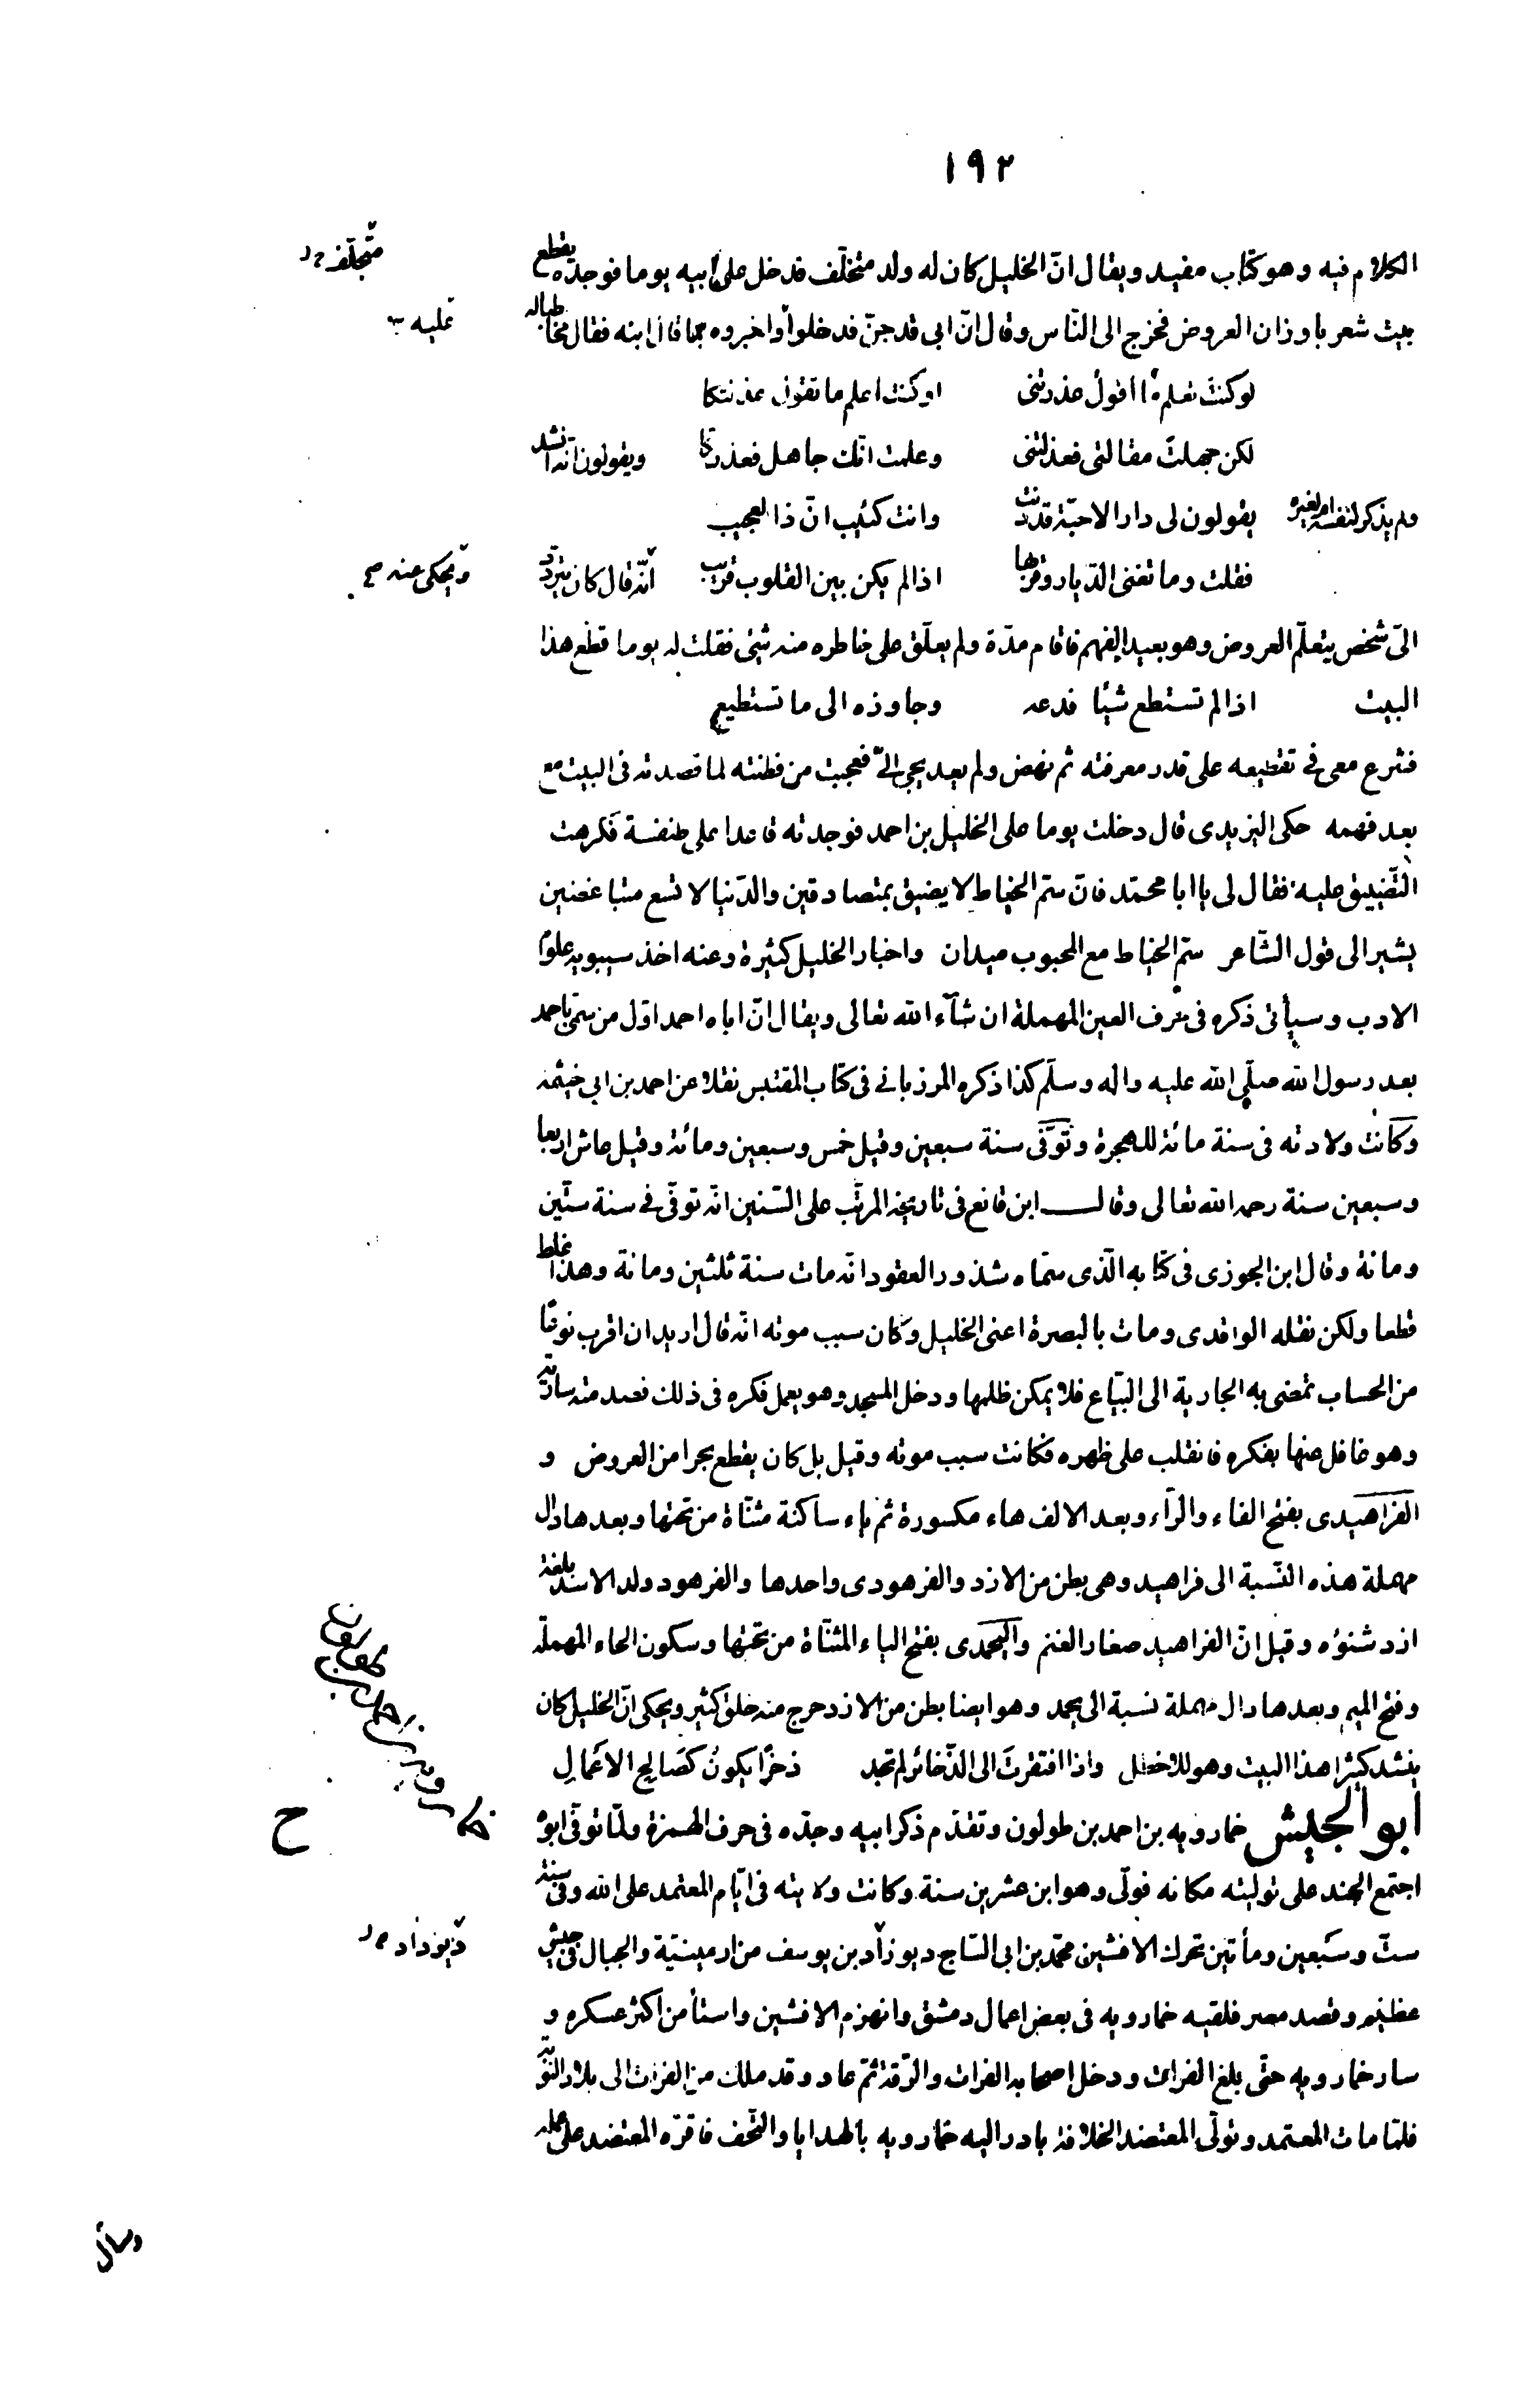 ١٩٢
الكلام فيه وهو كتاب مفيد ويقال انّ الخليل كان له ولد متخلّف فدخل على ابيه يوما فوجده يقطع
متخلّف
بيت شعر باوزان العروض فخرج الى النّاس وقال انّ ابى قد جنّ فدخلوا واخبروه بما قال ابنه فقال مخاطبا له
عليه
لو كنتَ تعلم ما اقولُ عذرتنى اوكنتَ اعلم ما تقول عذلتكا
لكن جهلتَ مقالتى فعذلتنى وعلمت انّك جاهل فعذرتكا ويقولون انّه انشد
ولم يذكر لنفسه ام لغيره يقولون لى دار الاحبّة قد دنت وانت كئيب انّ ذا لعجيب
فقلت وما تغنى الدّيار وقربها اذا لم يكن بين القلوب قريب انّه قال كان يتردّد
ويحكى عنه صح
الىّ شخص يتعلّم العروض وهو بعيد الفهم فاقام مدّة ولم يعلّق على خاطره منه شئ فقلت له يوما قطّع هذا
البيت اذا لم تستطع شيئا فدعه وجاوزه الى ما تستطيع
فشرع معى فى تقطيعه على قدر معرفته ثم نهض ولم يعد يجئ الىّ فعجبت من فطنته لما قصدته فى البيت مع
بعد فهمه حكى اليزيدى قال دخلت يوما على الخليل بن احمد فوجدته قاعدا على طنفسة فكرهت
التّضييق عليه فقال لى يا ابا محمّد فانّ سمّ الخياط لا يضيق بمتصادقين والدّنيا لا تسع متباغضين
يشير الى قول الشّاعر سمّ الخياط مع المحبوب ميدان واخبار الخليل كثيرة وعنه اخذ سيبويه علوم
الادب وسيأتى ذكره فى حرف العين المهملة ان شآء الله تعالى ويقال انّ اباه احمد اوّل من سمّى باحمد
بعد رسول الله صلّى الله عليه واله وسلّم كذا ذكره المرزبانى فى كتاب المقتبس نقلا عن احمد بن ابى خيثمة
وكانت ولادته فى سنة مائة للهجرة وتوفّى سنة سبعين وقيل خمس وسبعين ومائة وقيل عاش اربعا
وسبعين سنة رحمه الله تعالى وقال ابن قانع فى تاريخه المرتّب على السّنين انّه توفّى فى سنة ستّين
ومائة وقال ابن الجوزى فى كتابه الّذى سمّاه شذور العقود انّه مات سنة ثلثين ومائة وهذا غلط
قطعا ولكن نقله الواقدى ومات بالبصرة اعنى الخليل وكان سبب موته انّه قال اريد ان اقرب نوعًا
من الحساب تمضى به الجارية الى البيّاع فلا يمكن ظلمها ودخل المسجد وهو يعمل فكره فى ذلك فصدمته سارية
وهو غافل عنها بفكره فانقلب على ظهره فكانت سبب موته وقيل بل كان يقطع بحرا من العروض و
الفراهيدى بفتح الفاء والرّاء وبعد الالف هاء مكسورة ثم ياء ساكنة مثنّاة من تحتها وبعدها دال
مهملة هذه النّسبة الى فراهيد وهى بطن من الازد والفرهودى واحدها والفرهود ولد الاسد بلغة
ازد شنوءه وقيل انّ الفراهيد صغار الغنم واليحمدى بفتح الياء المثنّاة من تحتها وسكون الحاء المهملة
وفتح الميم وبعدها دال مهملة نسبة الى يحمد وهو ايضا بطن من الازد خرج منه خلق كثير ويحكى انّ الخليل كان
ينشد كثيرا هذا البيت وهو للاخطل واذا افتقرتَ الى الذّخائر لم تجد ذخرًا يكونُ كصَالح الاَعْمَالِ
أبو الجيش خمارويه بن احمد بن طولون وتقدّم ذكر ابيه وجدّه فى حرف الهمزة ولمّا توفّى ابوه
ح
اجتمع الجند على توليته مكانه فولّى وهو ابن عشرين سنة وكانت ولايته فى ايّام المعتمد على الله وفى سنة
ستّ وسَبعين ومأتين تحرك الافشين محمّد بن ابى السّاج ديوزاد بن يوسف من ارمينيّة والجبال فى جيش
ديوداد
عظيم وقصد مصر فلقيه خمارويه فى بعض اعمال دمشق وانهزم الافشين واستأمن اكثر عسكره و
سار خمارويه حتّى بلغ الفرات ودخل اصحابه الفرات والرّقة ثمّ عاد وقد ملك من الفرات الى بلاد النّوبة
فلمّا مات المعتمد وتولّى المعتضد الخلافة بادر اليه خمارويه بالهدايا والتّحف فاقرّه المعتضد على عمله
وسأل